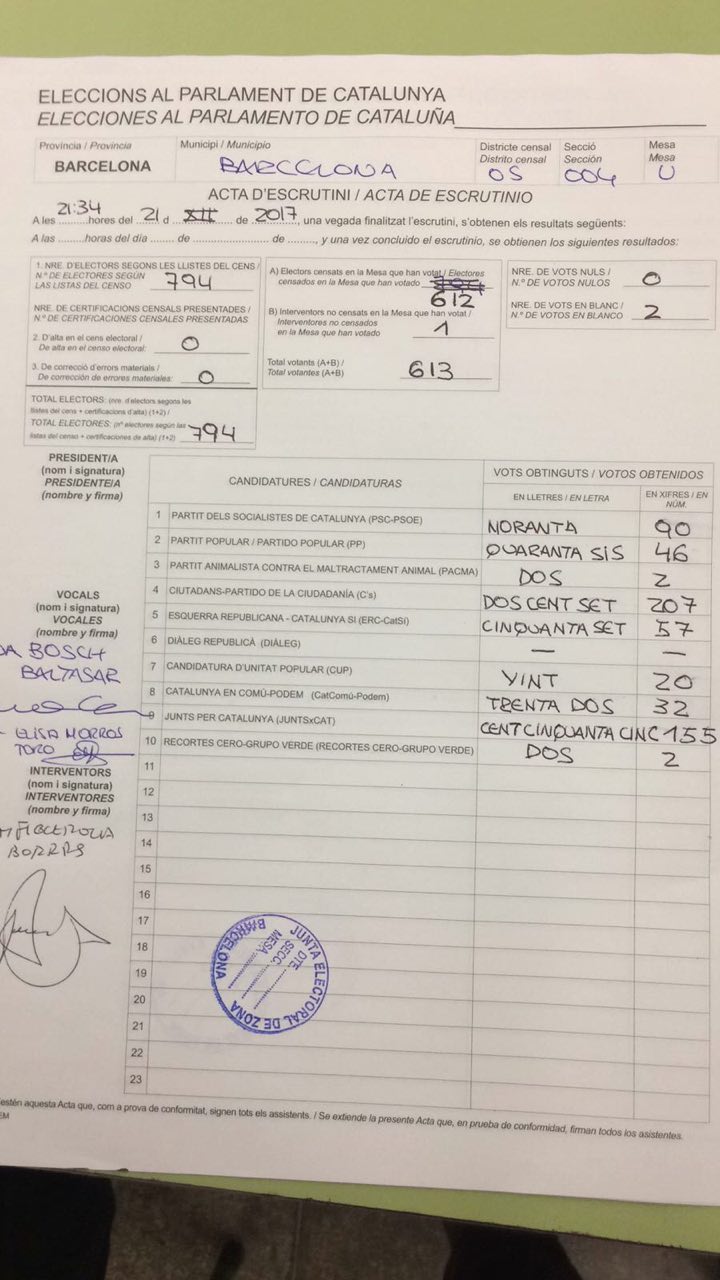 ELECCIONS AL PARLAMENT DE CATALUNYA
ELECCIONES AL PARLAMENTO DE CATALUÑA
Província / Provincia
BARCELONA
Municipi / Municipio
BARCELONA
Districte censal
Distrito censal
05
Secció
Sección
004
Mesa
Mesa
U
ACTA D'ESCRUTINI / ACTA DE ESCRUTINIO
A les 21:34 hores del 21 d XII de 2017, una vegada finalitzat l'escrutini, s'obtenen els resultats següents:
A las ......... horas del día ......... de ......... de ........., y una vez concluido el escrutinio, se obtienen los siguientes resultados:
1. NRE. D'ELECTORS SEGONS LES LLISTES DEL CENS /
N.º DE ELECTORES SEGÚN
LAS LISTAS DEL CENSO 794
NRE. DE CERTIFICACIONS CENSALS PRESENTADES /
N.º DE CERTIFICACIONES CENSALES PRESENTADAS
2. D'alta en el cens electoral /
De alta en el censo electoral: 0
3. De correcció d'errors materials /
De corrección de errores materiales: 0
TOTAL ELECTORS: (nre. d'electors segons les
llistes del cens + certificacions d'alta) (1+2) /
TOTAL ELECTORES: (nº electores según las
listas del censo + certificaciones de alta) (1+2) 794
A) Electors censats en la Mesa que han votat / Electores
censados en la Mesa que han votado
612
B) Interventors no censats en la Mesa que han votat /
Interventores no censados
en la Mesa que han votado 1
Total votants (A+B) /
Total votantes (A+B) 613
NRE. DE VOTS NULS /
N.º DE VOTOS NULOS 0
NRE. DE VOTS EN BLANC /
N.º DE VOTOS EN BLANCO 2
PRESIDENT/A
(nom i signatura)
PRESIDENTE/A
(nombre y firma)
VOCALS
(nom i signatura)
VOCALES
(nombre y firma)
BOSCH
BALTASAR
ELISA MORROS
TORO
INTERVENTORS
(nom i signatura)
INTERVENTORES
(nombre y firma)
BORRAS
CANDIDATURES / CANDIDATURAS
VOTS OBTINGUTS / VOTOS OBTENIDOS
EN LLETRES / EN LETRA
EN XIFRES / EN NÚM.
1 PARTIT DELS SOCIALISTES DE CATALUNYA (PSC-PSOE) NORANTA 90
2 PARTIT POPULAR / PARTIDO POPULAR (PP) QUARANTA SIS 46
3 PARTIT ANIMALISTA CONTRA EL MALTRACTAMENT ANIMAL (PACMA) DOS 2
4 CIUTADANS-PARTIDO DE LA CIUDADANÍA (C's) DOS CENT SET 207
5 ESQUERRA REPUBLICANA - CATALUNYA SI (ERC-CatSí) CINQUANTA SET 57
6 DIÀLEG REPUBLICÀ (DIÀLEG) — —
7 CANDIDATURA D'UNITAT POPULAR (CUP) VINT 20
8 CATALUNYA EN COMÚ-PODEM (CatComú-Podem) TRENTA DOS 32
9 JUNTS PER CATALUNYA (JUNTSxCAT) CENT CINQUANTA CINC 155
10 RECORTES CERO-GRUPO VERDE (RECORTES CERO-GRUPO VERDE) DOS 2
11
12
13
14
15
16
17
18
19
20
21
22
23
JUNTA ELECTORAL DE ZONA
BARCELONA
DTE.
SECC.
MESA
estén aquesta Acta que, com a prova de conformitat, signen tots els assistents. / Se extiende la presente Acta que, en prueba de conformidad, firman todos los asistentes.